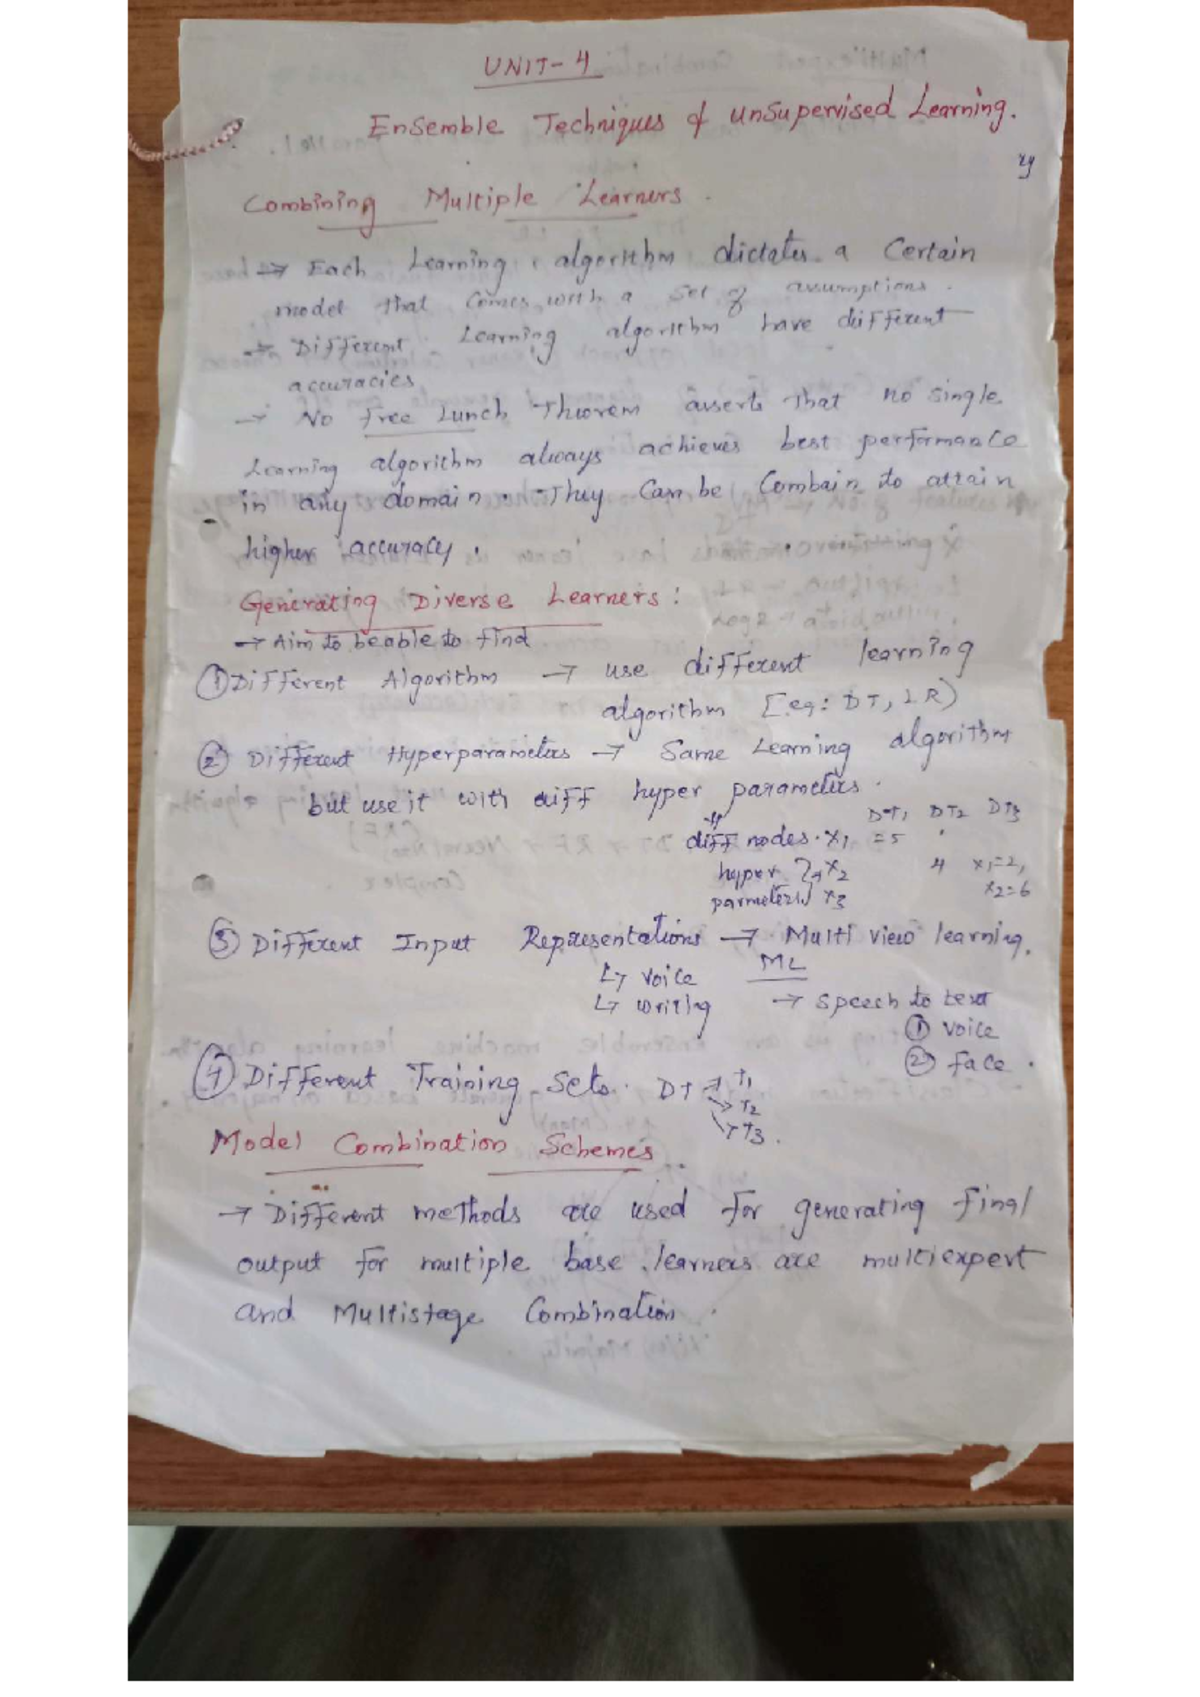 UNIT-4
Ensemble Techniques & UnSupervised Learning.
Combining Multiple Learners.
→ Each Learning algorithm dictates a Certain
model that Comes with a set of assumptions.
→ Different Learning algorithm have different
accuracies
→ No Free Lunch Theorem asserts that no single
Learning algorithm always achieves best performance
in any domain. They Can be Combain to attain
higher accuracy.
Generating Diverse Learners:
→ Aim to beable to find
① Different Algorithm → use different learning
algorithm [eg: DT, LR)
② Different Hyperparameters → Same Learning algorithm
but use it with diff hyper parameters.
DT1 DT2 DT3
diff nodes. x1 =5
hyper x2 4 x1=2,
x3 x2=6
③ Different Input Representations → Multi view learning.
↳ voice ML
↳ writing → speech to text
① voice
② face.
④ Different Training Sets. DT → T1
→ T2
→ T3.
Model Combination Schemes
→ Different methods are used for generating final
output for multiple base learners are multiexpert
and Multistage Combination.